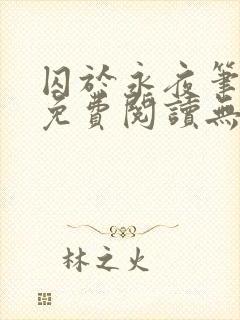 囚於永夜筆
免費閱讀無
林之火